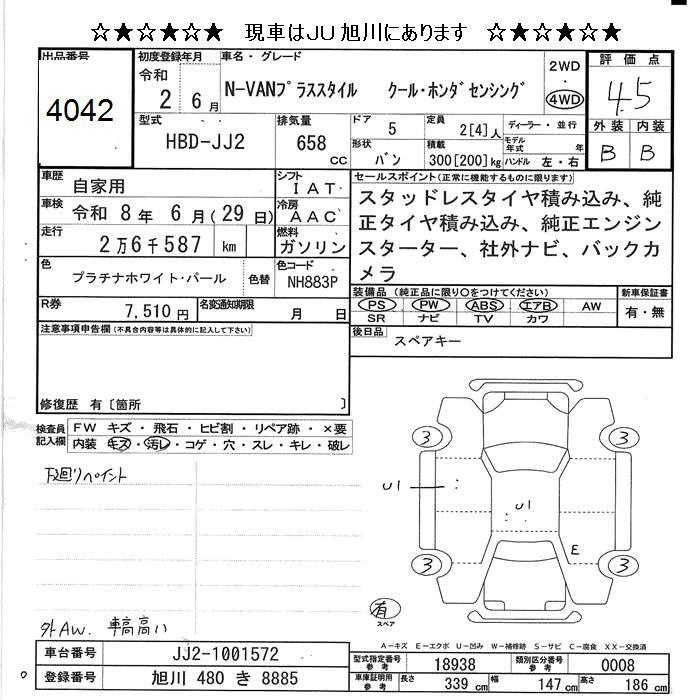 ☆★☆★☆★☆ 現車はJU旭川にあります ☆★☆★☆★☆
出品番号
4042
初度登録年月
令和
2 6月
車名・グレード
N-VANプラススタイル クール・ホンダセンシング
2WD
・
4WD
評価点
4.5
外装 内装
B B
型式
HBD-JJ2
排気量
658
cc
ドア
5
定員
2[4]人
ディーラー・並行
形状
バン
積載
300[200]kg
モデル年式 年
ハンドル 左・右
車歴
自家用
シフト
IAT
車検
令和 8年 6月(29日)
冷房
AAC
走行
2万6千587 km
燃料
ガソリン
色
プラチナホワイト・パール
色替
色コード
NH883P
R券
7,510円
名変通知期限
月 日
セールスポイント(正常に機能するものに限ります)
スタッドレスタイヤ積み込み、純
正タイヤ積み込み、純正エンジン
スターター、社外ナビ、バックカ
メラ
装備品(純正品に限り○をつけてください)
PS PW ABS エアB AW
SR ナビ TV カワ
新車保証書
有・無
後日品
スペアキー
注意事項申告欄(不具合内容等は具体的に記入して下さい)
修復歴 有〔箇所 〕
検査員
記入欄
FW キズ・飛石・ヒビ割・リペア跡・×要
内装 キズ・汚レ・コゲ・穴・スレ・キレ・破レ
下廻りペイント
外AW. 車高高い
3 3
U1
U1
E
3 3
有
スペア
A-キズ E-エクボ U-凹み W-補修跡 S-サビ C-腐食 XX-交換済
車台番号
JJ2-1001572
登録番号
旭川 480 き 8885
型式指定番号
参考
18938
類別区分番号
参考
0008
車庫証明用
参考
長さ 339cm 幅 147cm 高さ 186cm